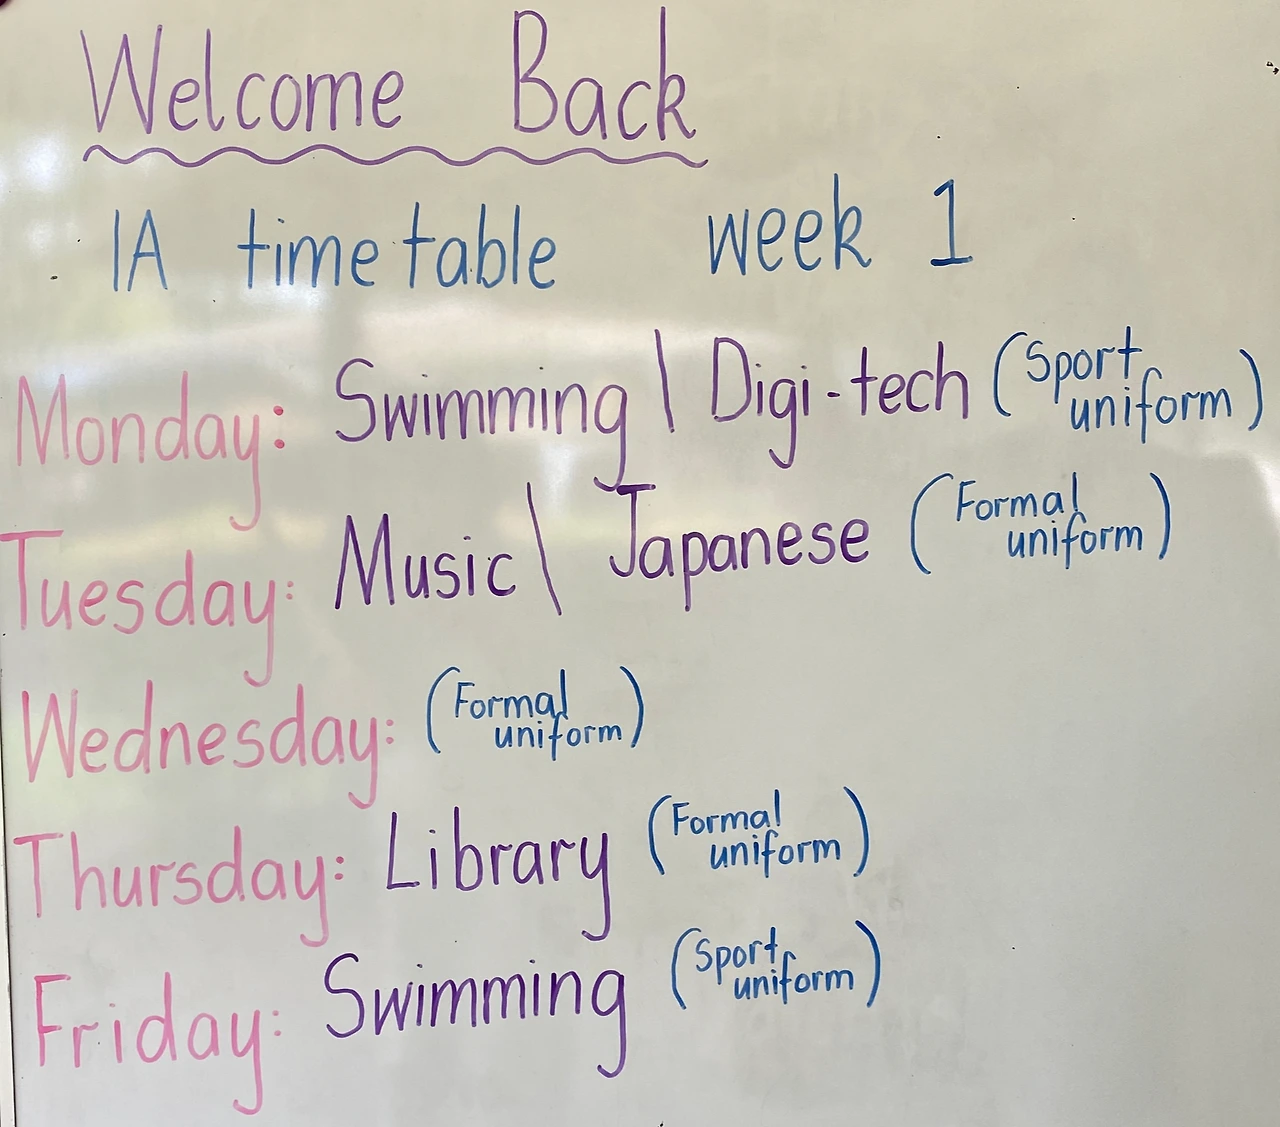 Welcome Back
1A timetable week 1
Monday: Swimming \ Digi-tech (Sport uniform)
Tuesday: Music \ Japanese (Formal uniform)
Wednesday: (Formal uniform)
Thursday: Library (Formal uniform)
Friday: Swimming (Sport uniform)